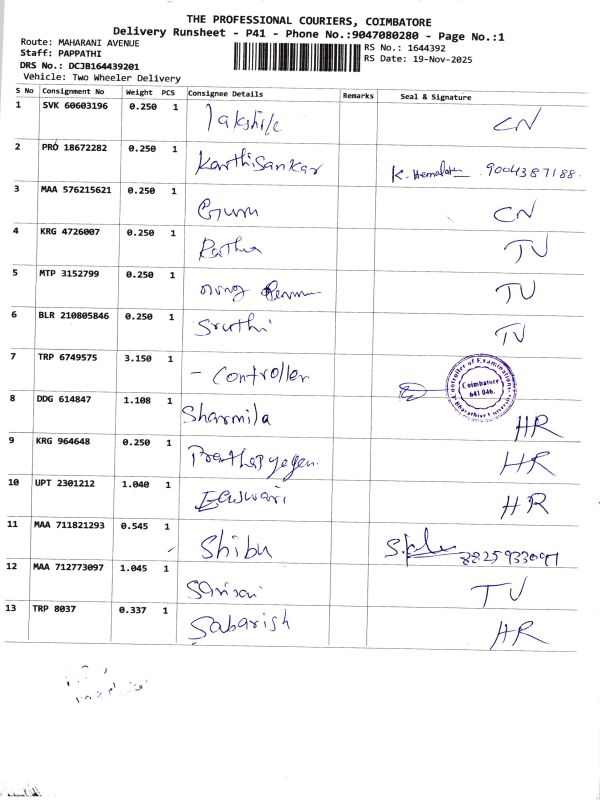 THE PROFESSIONAL COURIERS, COIMBATORE
Delivery Runsheet - P41 - Phone No.:9047080280 - Page No.:1
Route: MAHARANI AVENUE
RS No.: 1644392
Staff: PAPPATHI
RS Date: 19-Nov-2025
DRS No.: DCJB164439201
Vehicle: Two Wheeler Delivery
S No Consignment No Weight PCS Consignee Details Remarks Seal & Signature
1 SVK 60603196 0.250 1 CN
2 PRO 18672282 0.250 1 Karthisankar K. Hemalatha 9004387188.
3 MAA 576215621 0.250 1 Guru CN
4 KRG 4726007 0.250 1 TV
5 MTP 3152799 0.250 1 TV
6 BLR 210805846 0.250 1 Sruthi TV
7 TRP 6749575 3.150 1 - Controller
Controller of Examinations
Coimbatore
641 046.
Bharathiar University
8 DDG 614847 1.108 1 Sharmila HR
9 KRG 964648 0.250 1 HR
10 UPT 2301212 1.040 1 Easwari HR
11 MAA 711821293 0.545 1 Shibu 8825933097
12 MAA 712773097 1.045 1 TV
13 TRP 8037 0.337 1 Sabarish HR